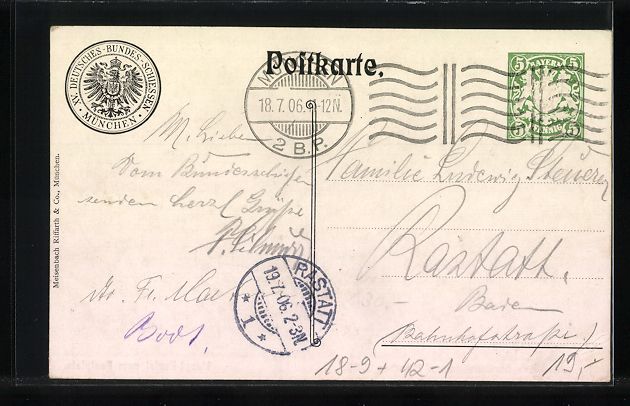 Postkarte.
XV. DEUTSCHES-BUNDES-SCHIESSEN
MÜNCHEN
18.7.06. -12N.
2 B.P.
5 BAYERN 5
5 PFENNIG 5
M. Lieben
Vom Bundesschießen
senden herzl Grüße
Familie Ludwig
Rastatt.
Baden
(Bahnhofstraße)
Fr.
RASTATT
19.7.06.2-3N.
* 1 *
Meisenbach Riffarth & Co., München.
18-9+42-1
19,-